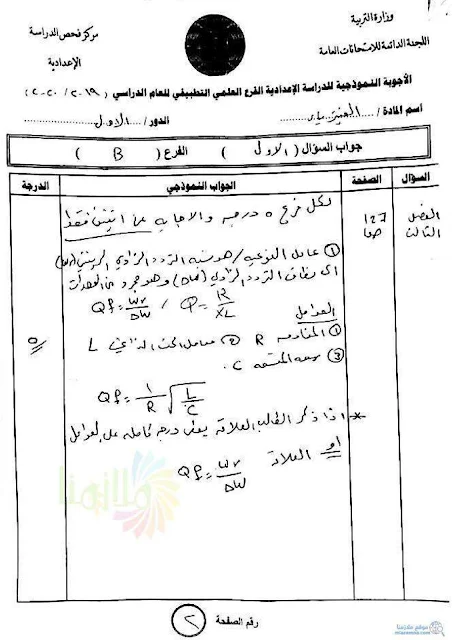 وزارة التربية
اللجنة الدائمة للامتحانات العامة
مركز فحص الدراسة
الإعدادية
الأجوبة النموذجية للدراسة الإعدادية الفرع العلمي التطبيقي للعام الدراسي (٢٠١٩/٢٠٢٠)
اسم المادة / الفيزياء الدور / الاول
جواب السؤال ( الاول ) الفرع ( B )
السؤال الصفحة الجواب النموذجي الدرجة
لكل فرع ٥ درجة والاجابة عن اثنين فقط
الفصل
الثالث
127
① عامل النوعية / هو نسبة التردد الزاوي الرنيني (ωr)
الى نطاق التردد الزاوي (Δω) وهو مجرد من الوحدات
Qf = ωr/Δω / Q = R/XL
العوامل
① المقاومة R ② معامل الحث الذاتي L
③ سعة المتسعة C.
٥
Qf = 1/R √L/C
* اذا ذكر الطالب العلاقة يعطى درجة كاملة على العوامل
او العلاقة Qf = ωr/Δω
ملازمنا
رقم الصفحة ٢
موقع ملازمنا